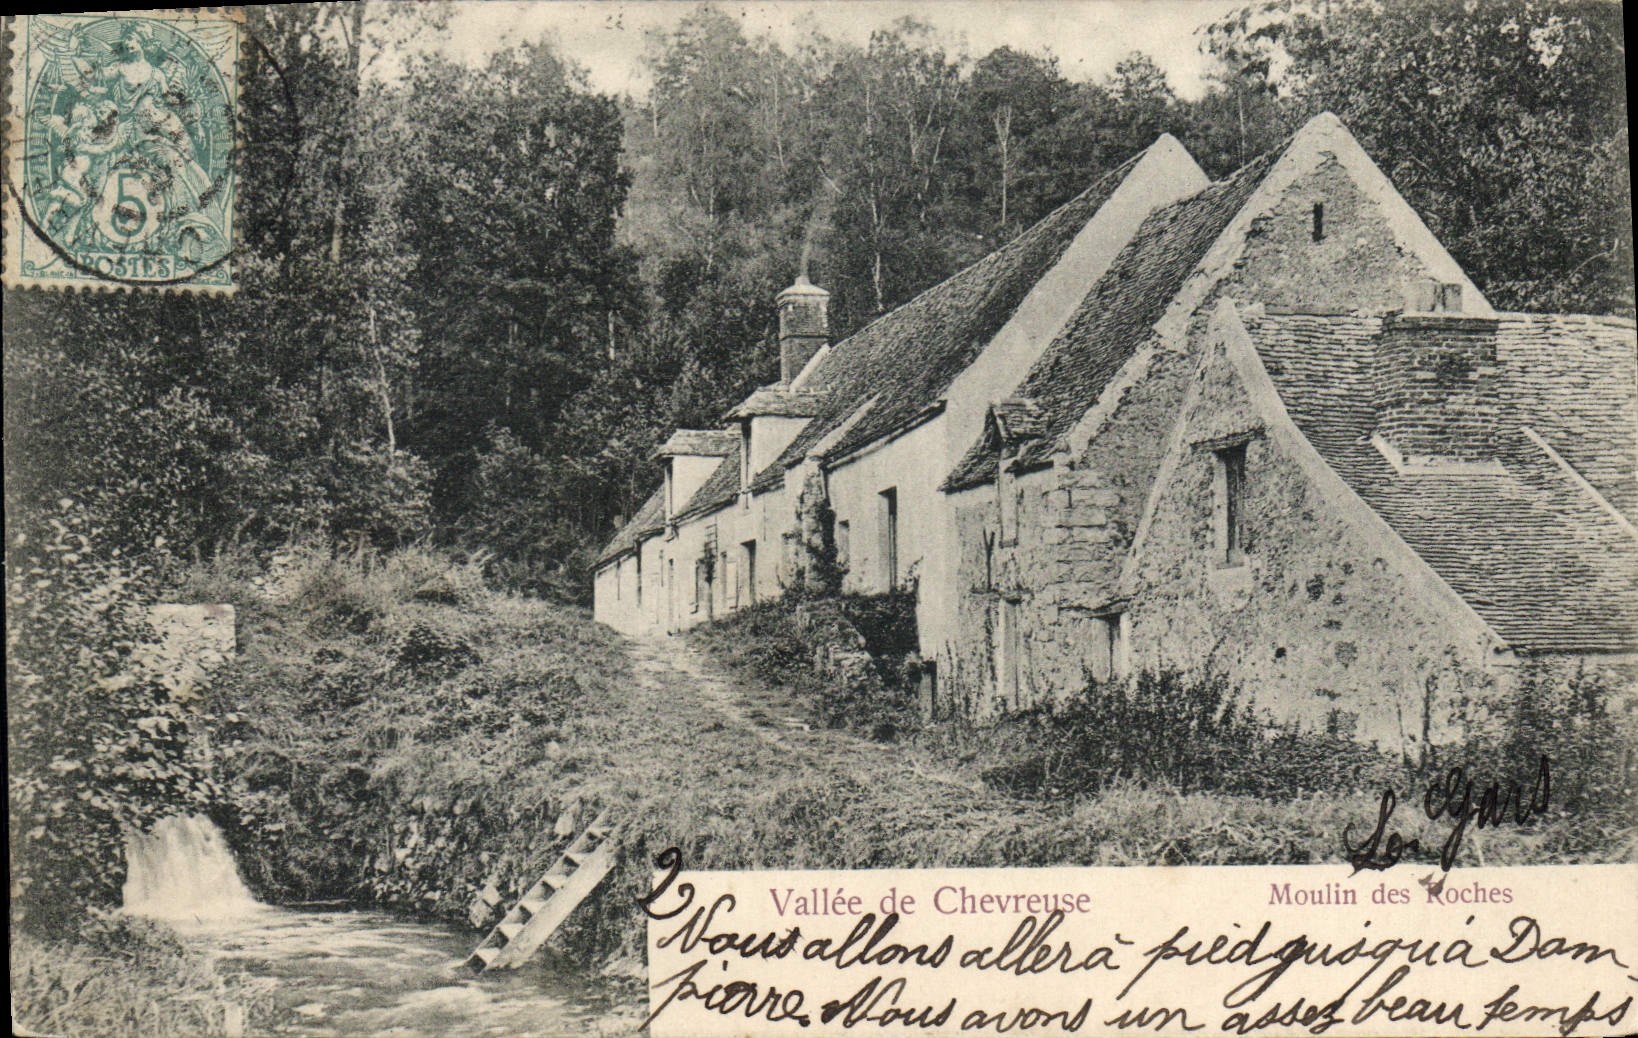 5
POSTES
Le Gars
2
Vallée de Chevreuse
Moulin des Roches
Nous allons aller à pied gusqu'à Dam-
pierre. Nous avons un assez beau temps